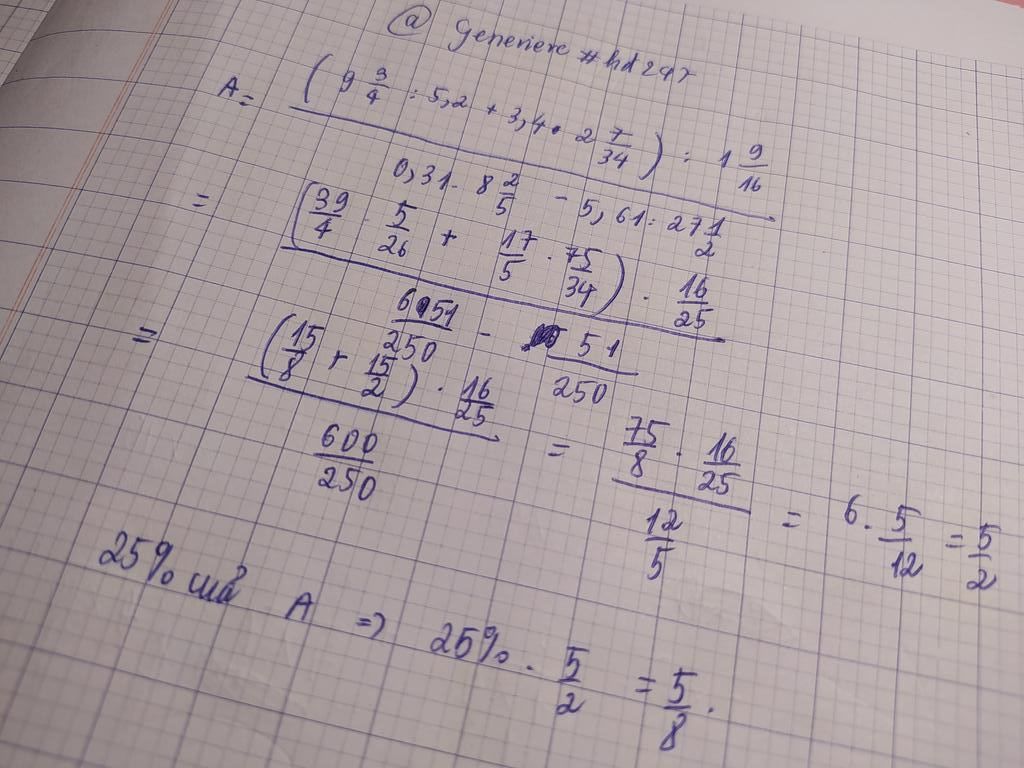 ⓐ
A = ( 9 3/4 : 5,2 + 3,4 · 2 7/34 ) : 1 9/16
0,31 · 8 2/5 - 5,61 : 27 1/2
= ( 39/4 · 5/26 + 17/5 · 75/34 ) · 16/25
651/250 - 51/250
= ( 15/8 + 15/2 ) · 16/25
600/250
= 75/8 · 16/25
12/5
= 6 · 5/12 = 5/2
25% A => 25% · 5/2 = 5/8.